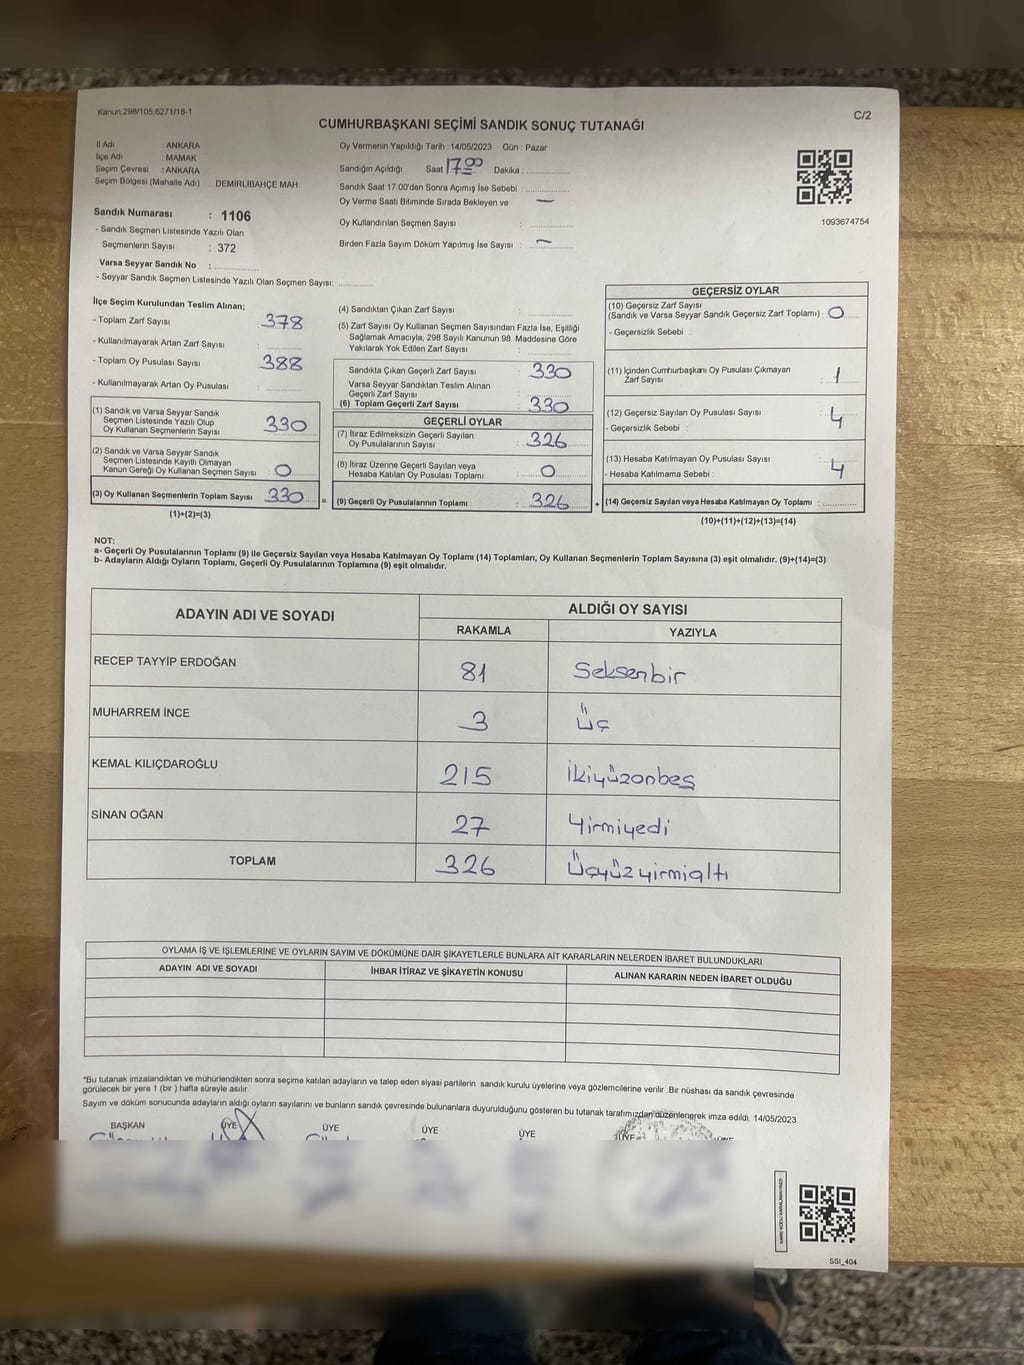 Kanun,298/105,6271/18-1
C/2
CUMHURBAŞKANI SEÇİMİ SANDIK SONUÇ TUTANAĞI
İl Adı : ANKARA
İlçe Adı : MAMAK
Seçim Çevresi : ANKARA
Seçim Bölgesi (Mahalle Adı) : DEMİRLİBAHÇE MAH
Sandık Numarası : 1106
- Sandık Seçmen Listesinde Yazılı Olan
Seçmenlerin Sayısı : 372
Varsa Seyyar Sandık No :
- Seyyar Sandık Seçmen Listesinde Yazılı Olan Seçmen Sayısı:
Oy Vermenin Yapıldığı Tarih :14/05/2023 Gün : Pazar
Sandığın Açıldığı Saat 17.00 Dakika :
Sandık Saat 17.00'den Sonra Açımış İse Sebebi :
Oy Verme Saati Bitiminde Sırada Bekleyen ve —
Oy Kullandırılan Seçmen Sayısı :
Birden Fazla Sayım Döküm Yapılmış İse Sayısı : —
1093674754
İlçe Seçim Kurulundan Teslim Alınan;
- Toplam Zarf Sayısı : 378
- Kullanılmayarak Artan Zarf Sayısı :
- Toplam Oy Pusulası Sayısı : 388
- Kullanılmayarak Artan Oy Pusulası :
(1) Sandık ve Varsa Seyyar Sandık
Seçmen Listesinde Yazılı Olup
Oy Kullanan Seçmenlerin Sayısı : 330
(2) Sandık ve Varsa Seyyar Sandık
Seçmen Listesinde Kayıtlı Olmayan
Kanun Gereği Oy Kullanan Seçmen Sayısı : 0
(3) Oy Kullanan Seçmenlerin Toplam Sayısı : 330
(1)+(2)=(3)
(4) Sandıktan Çıkan Zarf Sayısı :
(5) Zarf Sayısı Oy Kullanan Seçmen Sayısından Fazla İse, Eşitliği
Sağlamak Amacıyla, 298 Sayılı Kanunun 98. Maddesine Göre
Yakılarak Yok Edilen Zarf Sayısı :
Sandıkta Çıkan Geçerli Zarf Sayısı : 330
Varsa Seyyar Sandıktan Teslim Alınan
Geçerli Zarf Sayısı :
(6) Toplam Geçerli Zarf Sayısı : 330
GEÇERLİ OYLAR
(7) İtiraz Edilmeksizin Geçerli Sayılan
Oy Pusulalarının Sayısı : 326
(8) İtiraz Üzerine Geçerli Sayılan veya
Hesaba Katılan Oy Pusulası Toplamı : 0
= (9) Geçerli Oy Pusulalarının Toplamı : 326 +
GEÇERSİZ OYLAR
(10) Geçersiz Zarf Sayısı
(Sandık ve Varsa Seyyar Sandık Geçersiz Zarf Toplamı) : 0
- Geçersizlik Sebebi :
(11) İçinden Cumhurbaşkanı Oy Pusulası Çıkmayan
Zarf Sayısı : 1
(12) Geçersiz Sayılan Oy Pusulası Sayısı : 4
- Geçersizlik Sebebi :
(13) Hesaba Katılmayan Oy Pusulası Sayısı : 4
- Hesaba Katılmama Sebebi :
(14) Geçersiz Sayılan veya Hesaba Katılmayan Oy Toplamı :
(10)+(11)+(12)+(13)=(14)
NOT:
a- Geçerli Oy Pusulalarının Toplamı (9) ile Geçersiz Sayılan veya Hesaba Katılmayan Oy Toplamı (14) Toplamları, Oy Kullanan Seçmenlerin Toplam Sayısına (3) eşit olmalıdır. (9)+(14)=(3)
b- Adayların Aldığı Oyların Toplamı, Geçerli Oy Pusulalarının Toplamına (9) eşit olmalıdır.
ADAYIN ADI VE SOYADI
ALDIĞI OY SAYISI
RAKAMLA YAZIYLA
RECEP TAYYİP ERDOĞAN 81 Seksenbir
MUHARREM İNCE 3 Üç
KEMAL KILIÇDAROĞLU 215 İkiyüzonbeş
SİNAN OĞAN 27 Yirmiyedi
TOPLAM 326 Üçyüzyirmialtı
OYLAMA İŞ VE İŞLEMLERİNE VE OYLARIN SAYIM VE DÖKÜMÜNE DAİR ŞİKAYETLERLE BUNLARA AİT KARARLARIN NELERDEN İBARET BULUNDUKLARI
ADAYIN ADI VE SOYADI İHBAR İTİRAZ VE ŞİKAYETİN KONUSU ALINAN KARARIN NEDEN İBARET OLDUĞU
*Bu tutanak imzalandıktan ve mühürlendikten sonra seçime katılan adayların ve talep eden siyasi partilerin sandık kurulu üyelerine veya gözlemcilerine verilir. Bir nüshası da sandık çevresinde
görülecek bir yere 1 (bir ) hafta süreyle asılır.
Sayım ve döküm sonucunda adayların aldığı oyların sayılarını ve bunların sandık çevresinde bulunanlara duyurulduğunu gösteren bu tutanak tarafımızdan düzenlenerek imza edildi. 14/05/2023
BAŞKAN ÜYE ÜYE ÜYE ÜYE ÜYE ÜYE
SSI_404